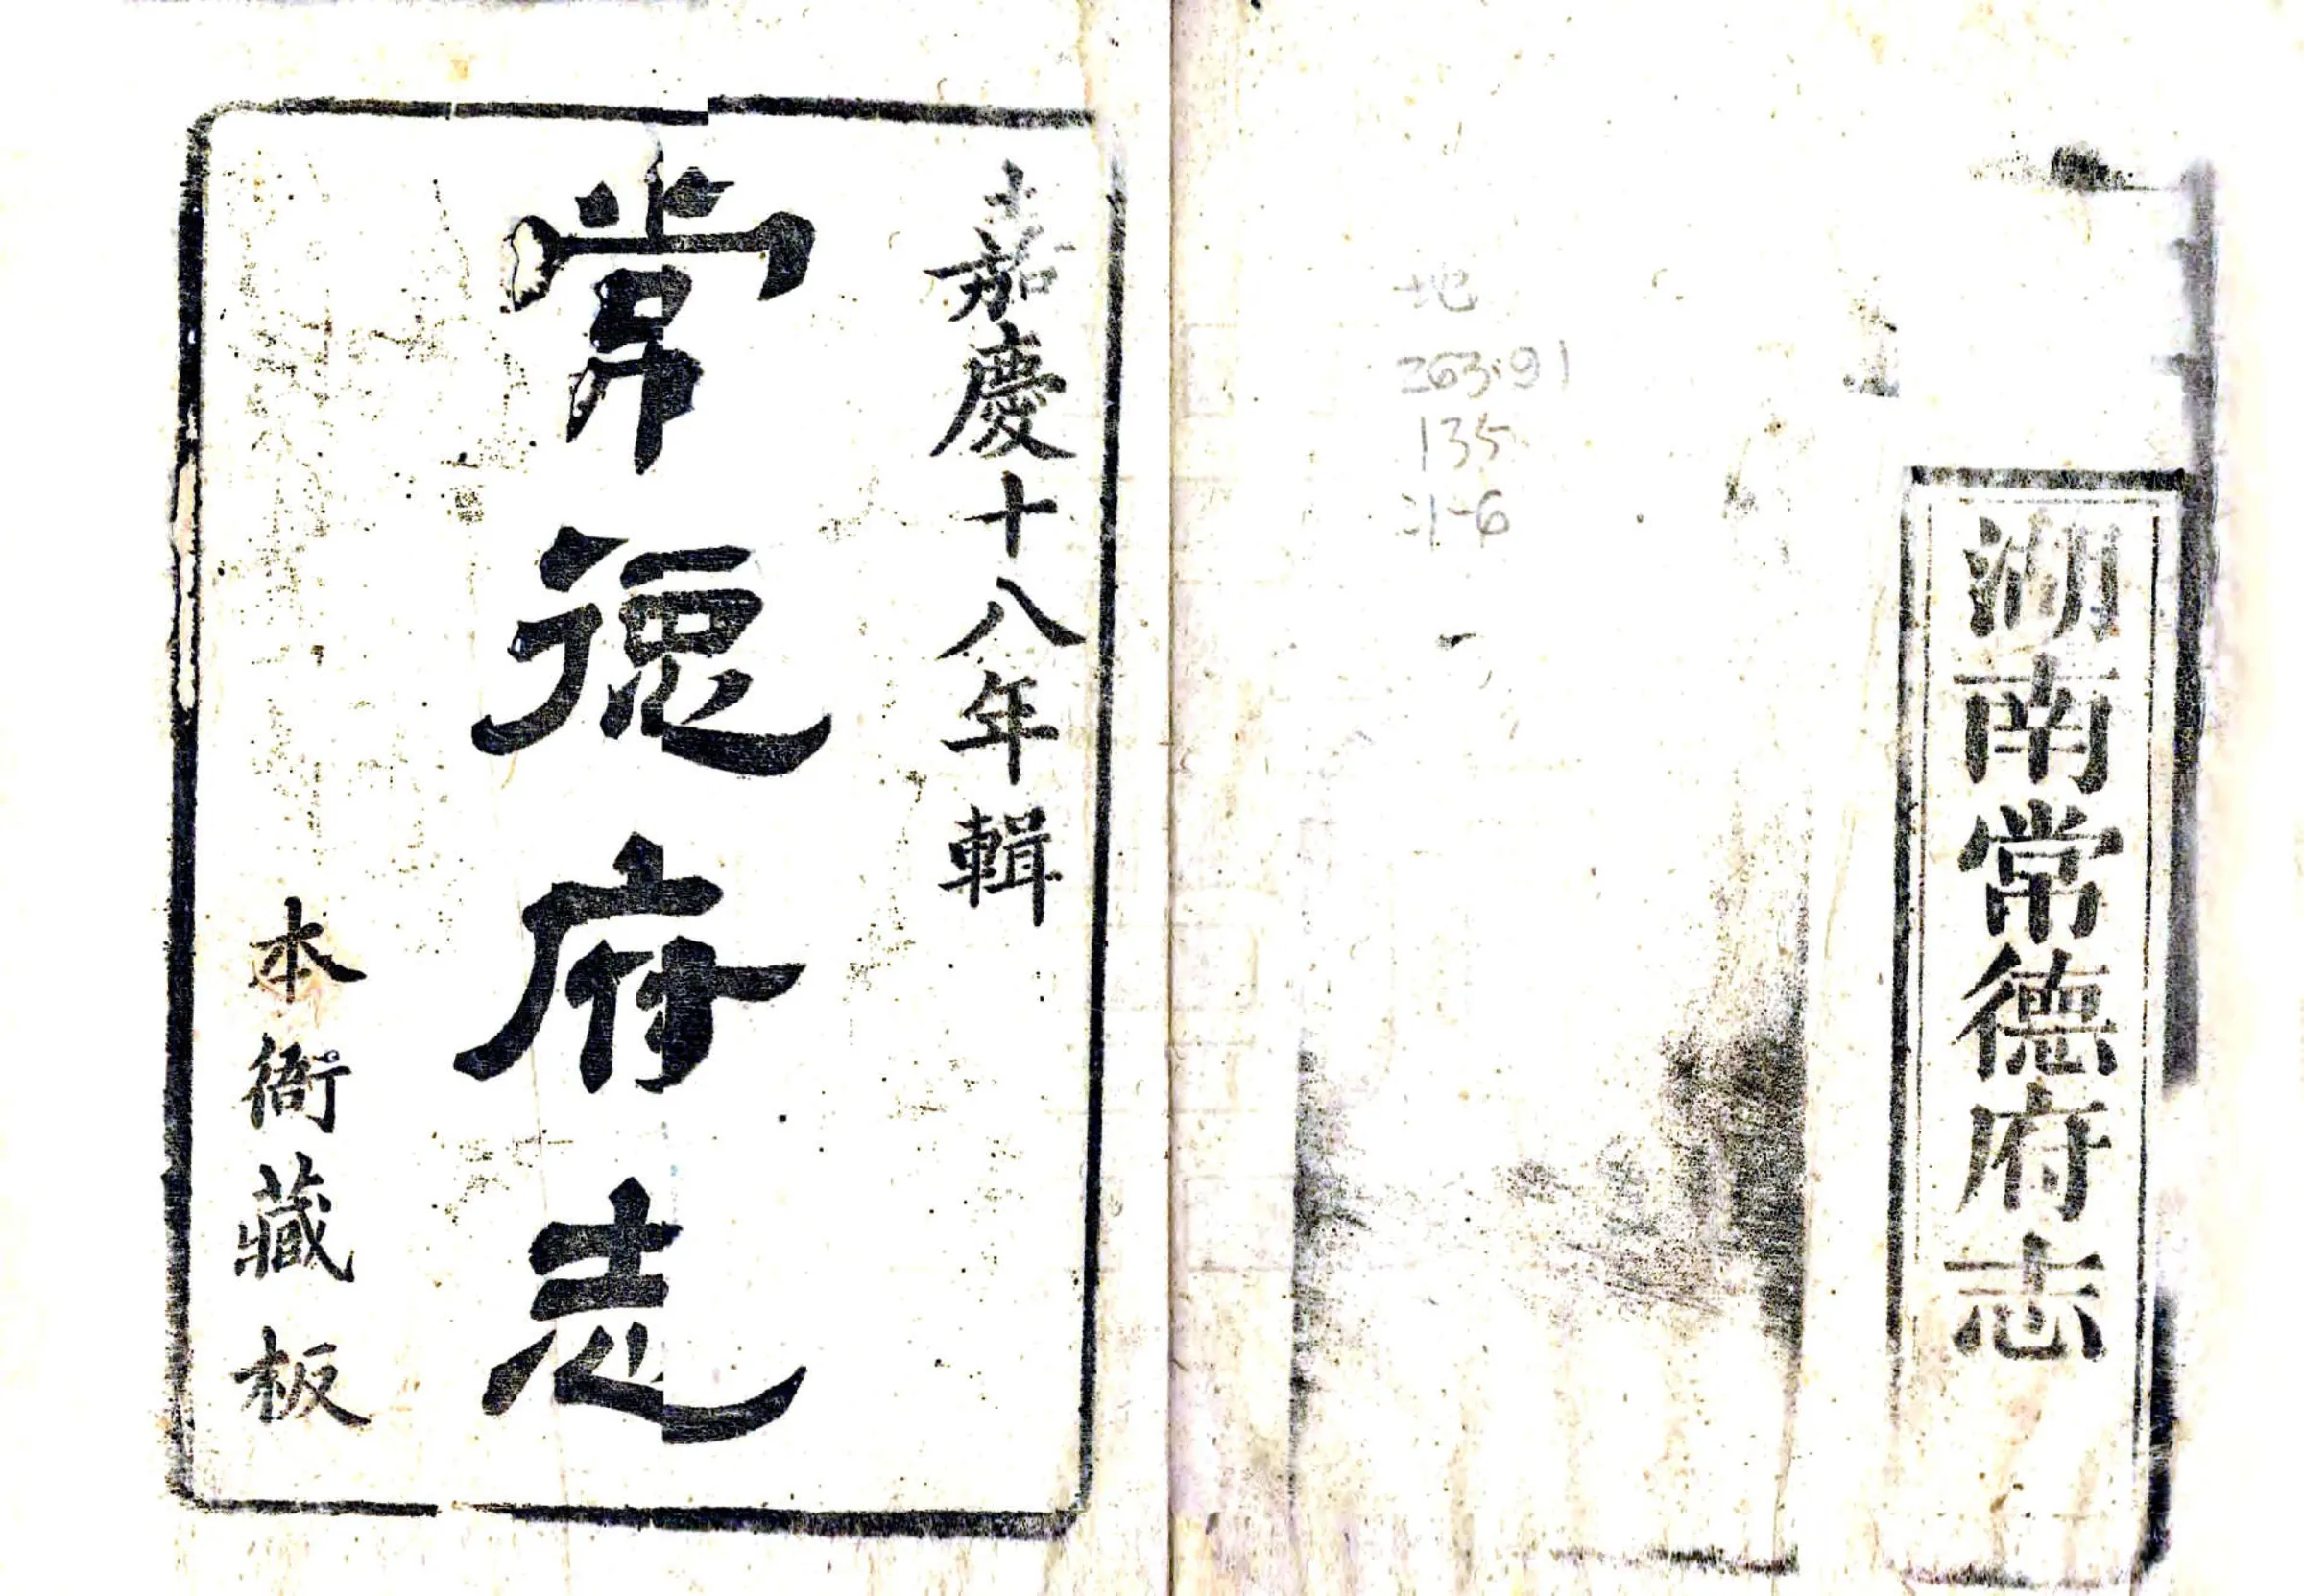 湖南常德府志
地
263.91
135
:1-6
嘉慶十八年輯
常德府志
本衙藏板